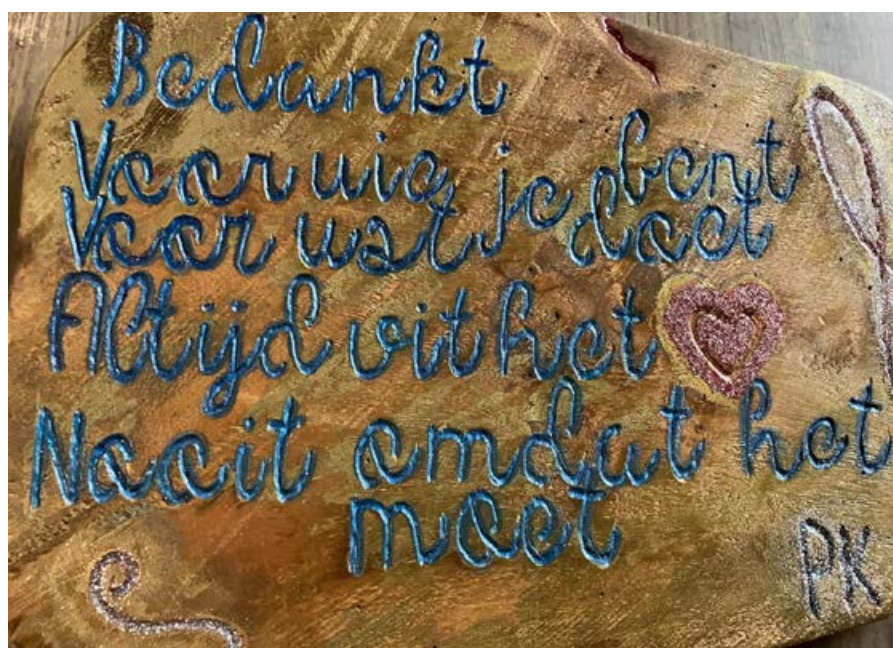 Bedankt
Voor wie je bent
Voor wat je doet
Altijd uit het
Nooit omdat het
moet
PK